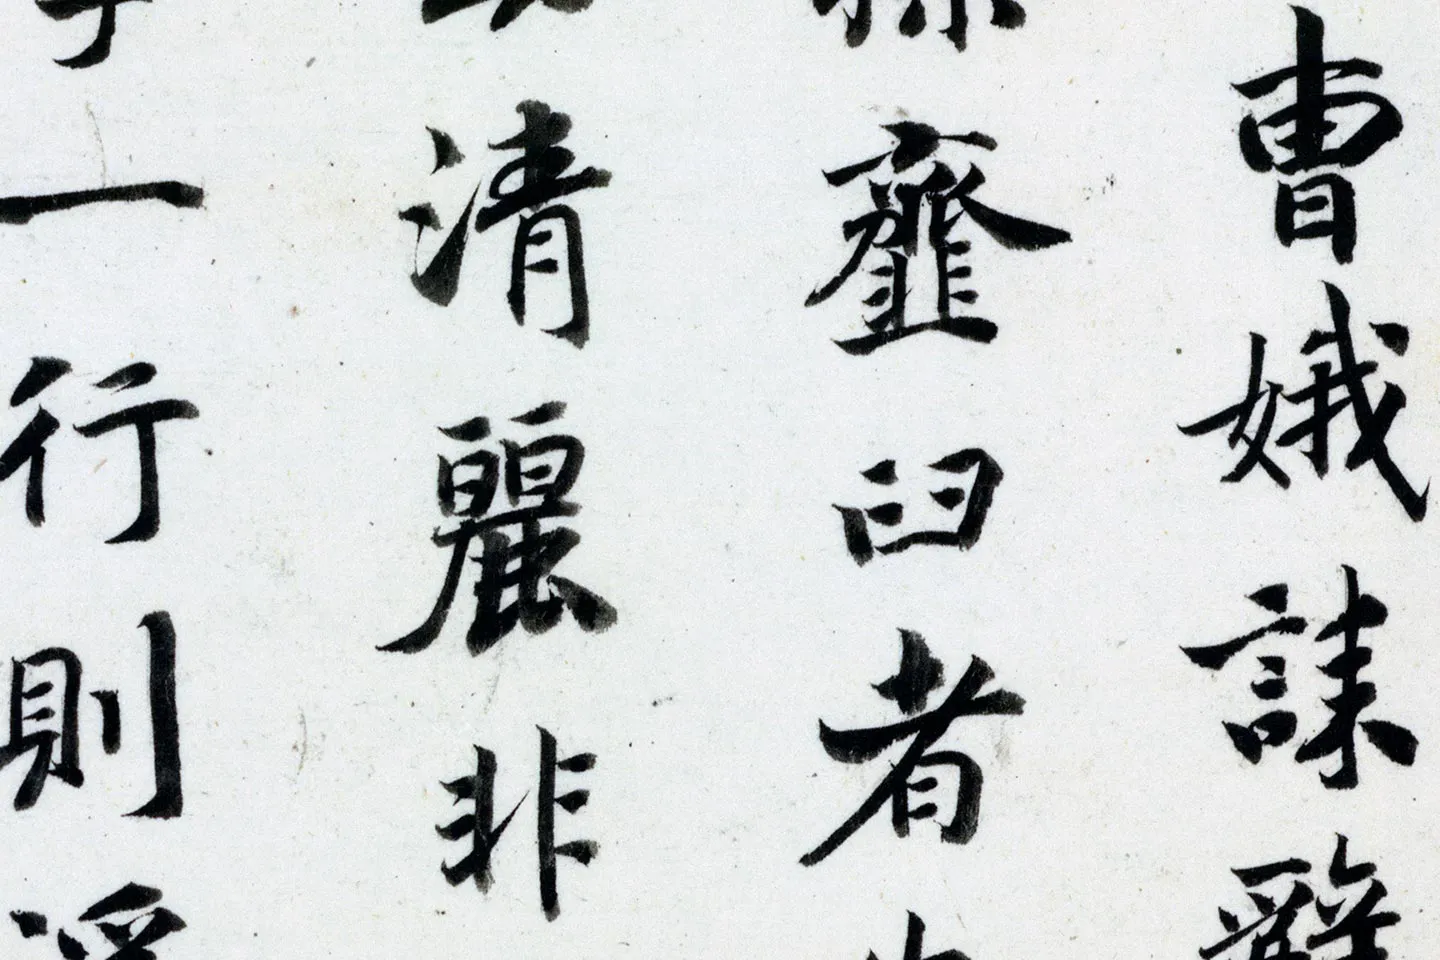 曹娥誄辭
孫齏臼者
清麗非
字一行則